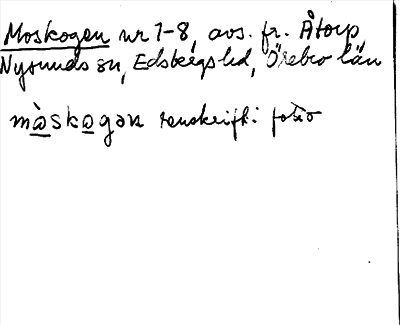 Moskogen nr 7-8, avs. fr. Åtorp,
Nysunds sn, Edsbergs hd, Örebro län
mòskogən renskrift: foʃio